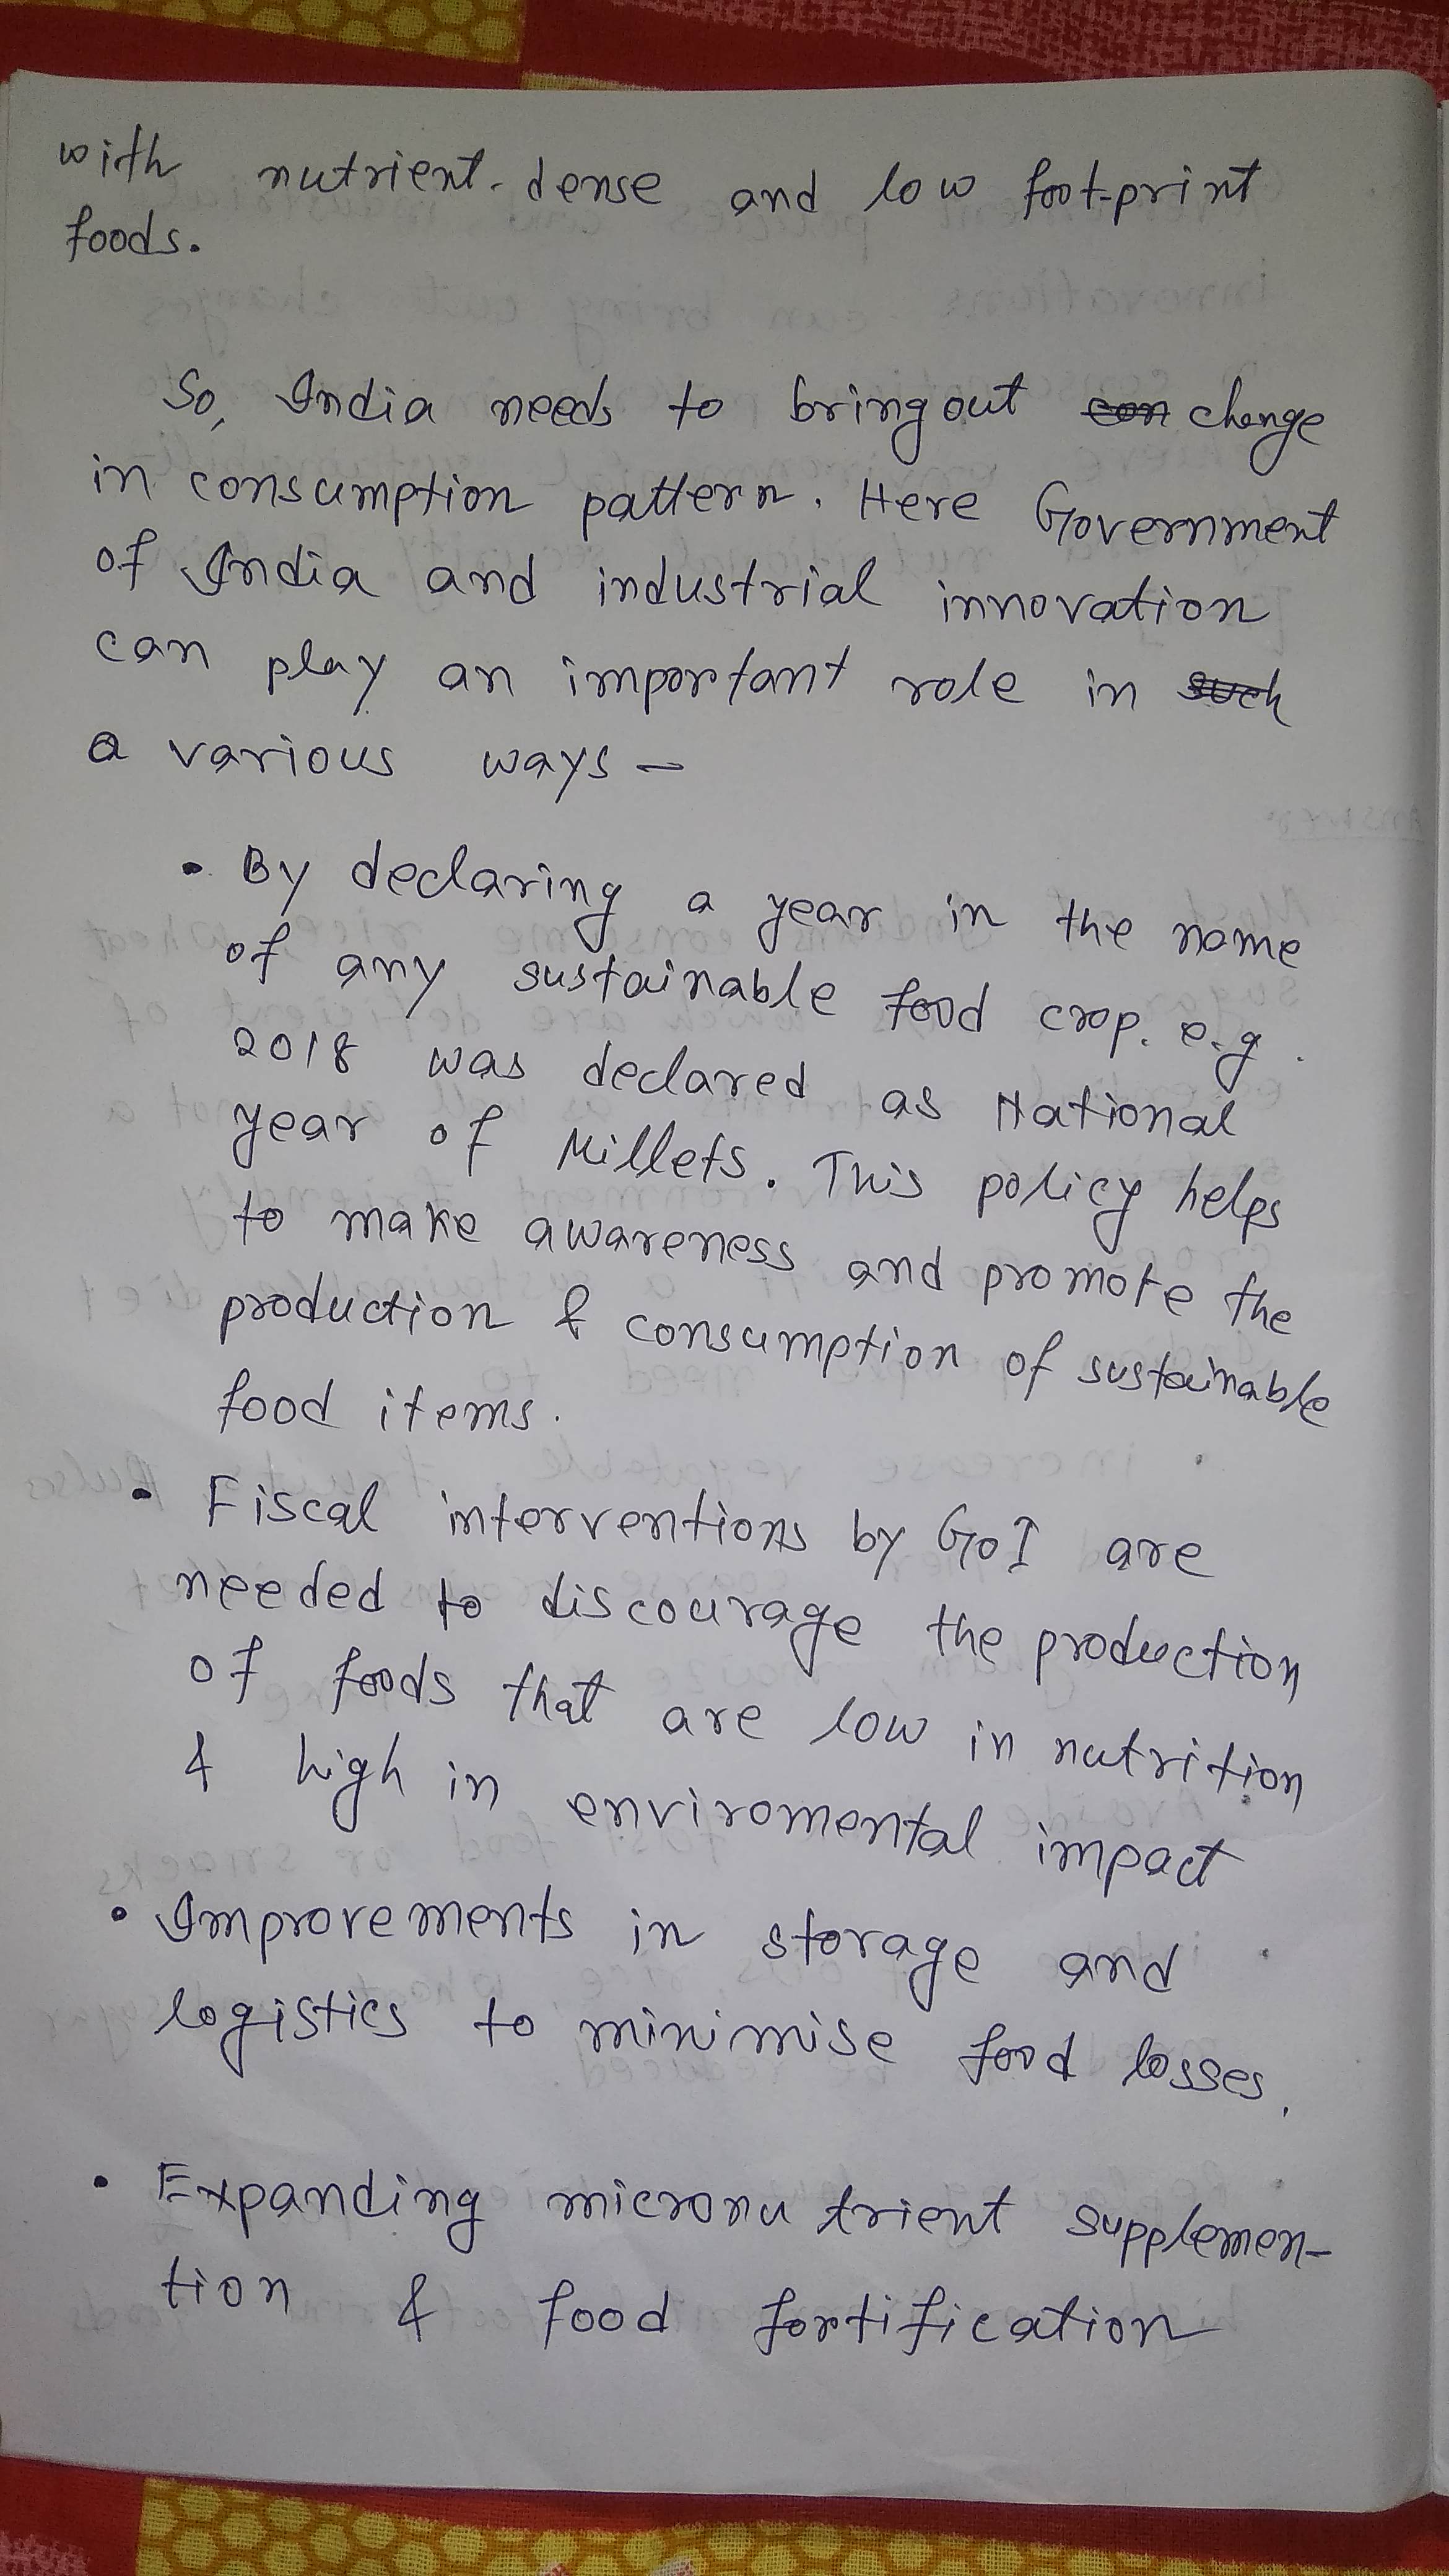 with nutrient-dense and low foot-print
foods.
So, India needs to bring out con change
in consumption pattern. Here Government
of India and industrial innovation
can play an important role in such
a various ways -
• By declaring a year in the name
of any sustainable food crop. e.g.
2018 was declared as National
year of Millets. This policy helps
to make awareness and promote the
production & consumption of sustainable
food items.
• Fiscal interventions by GoI are
needed to discourage the production
of foods that are low in nutrition
& high in enviromental impact
• Improvements in storage and
logistics to minimise food losses.
• Expanding micronutrient supplemen-
tion & food fortification